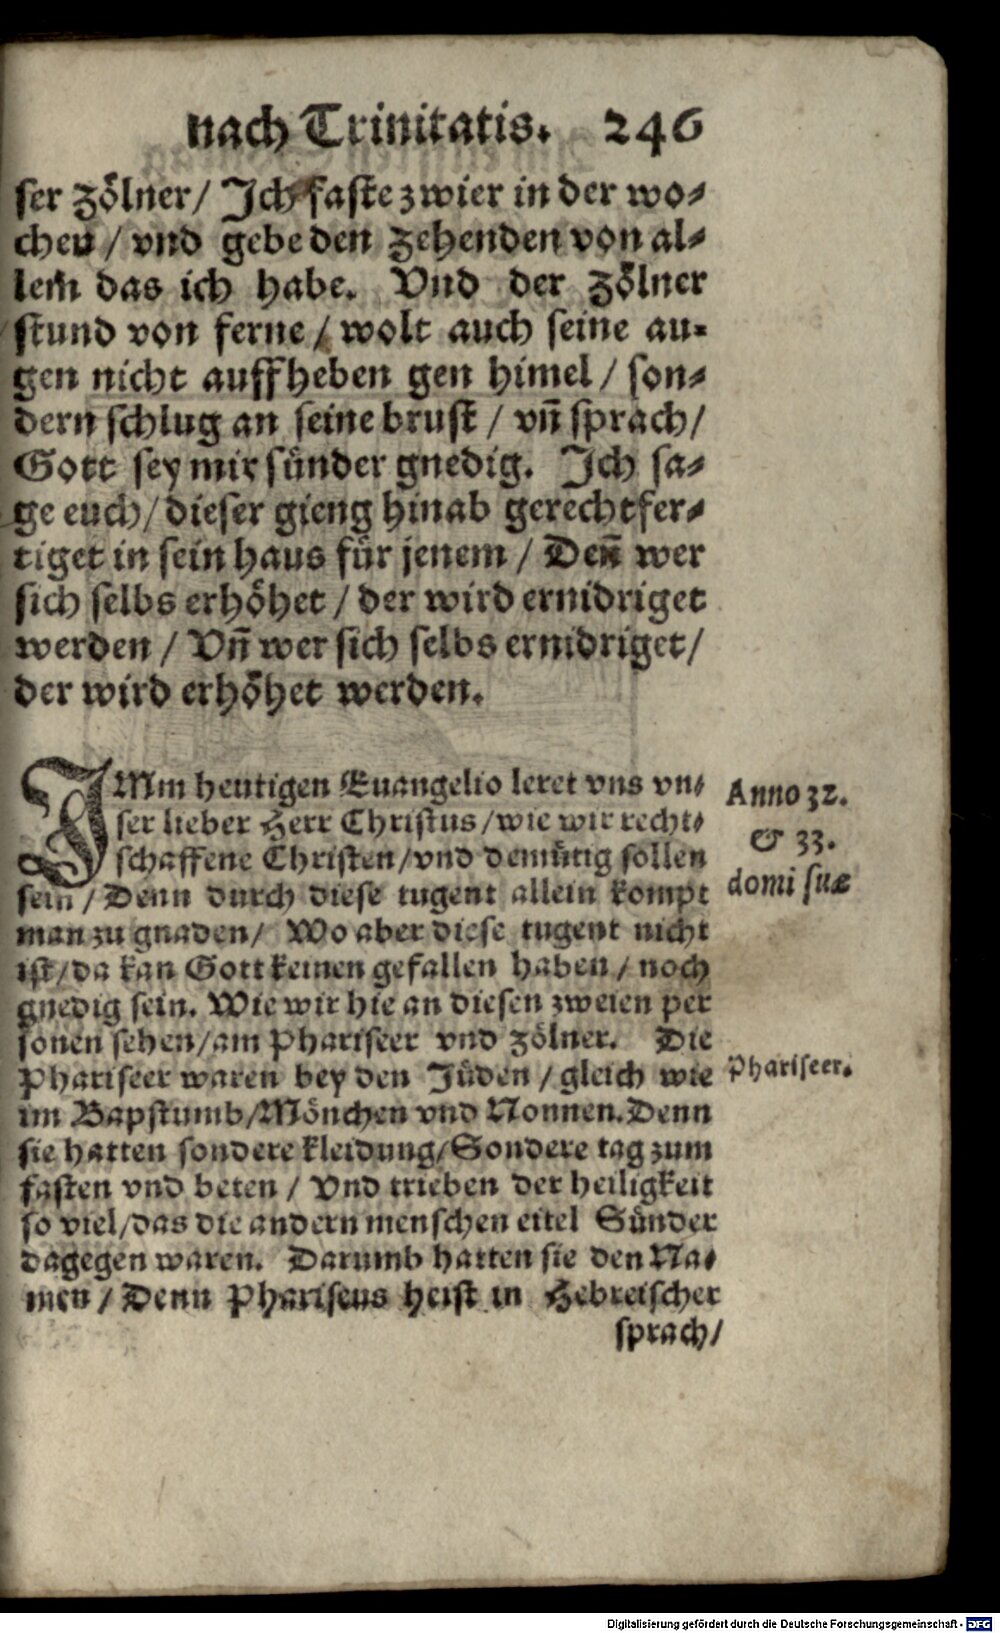 nach Trinitatis. 246
ser zölner/ Jch faste zwier in der wo⸗
chen / vnd gebe den zehenden von al⸗
lem das ich habe. Vnd der zölner
stund von ferne / wolt auch seine au⸗
gen nicht auffheben gen himel / son⸗
dern schlug an seine brust / vn̄ sprach/
Gott sey mir sünder gnedig. Jch sa⸗
ge euch/ dieser gieng hinab gerechtfer⸗
tiget in sein haus für jenem / Den̄ wer
sich selbs erhöhet / der wird ernidriget
werden / Vn̄ wer sich selbs ernidriget/
der wird erhöhet werden.
JMm heutigen Euangelio leret vns vn⸗
ser lieber Herr Christus/wie wir recht⸗
schaffene Christen/vnd demütig sollen
sein / Denn durch diese tugent allein kompt
man zu gnaden/ Wo aber diese tugent nicht
ist/da kan Gott keinen gefallen haben / noch
gnedig sein. Wie wir hie an diesen zweien per
sonen sehen/am Phariseer vnd zölner. Die
Phariseer waren bey den Jüden / gleich wie
im Bapstumb/Mönchen vnd Nonnen. Denn
sie hatten sondere kleidung/Sondere tag zum
fasten vnd beten / Vnd trieben der heiligkeit
so viel/das die andern menschen eitel Sünder
dagegen waren. Darumb hatten sie den Na⸗
men / Denn Phariseus heist in Hebreischer
sprach/
Anno 32.
& 33.
domi suæ
Phariseer.
Digitalisierung gefördert durch die Deutsche Forschungsgemeinschaft - DFG